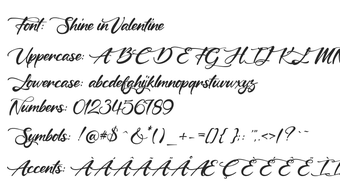 Font: Shine in Valentine
Uppercase: A B C D E F G H I J K L M N
Lowercase: abcdefghijklmnopqrstuvwxyz
Numbers: 0123456789
Symbols: !@#$^&*()_+-={}{}:;",.<>/?`~
Accents: À Á Â Ã Ä Å Æ Ç È É Ê Ë Ì Í